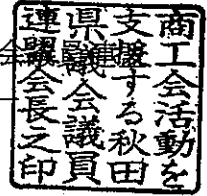 商工会活動を
支援する秋田
県議会議員
連盟会長之印